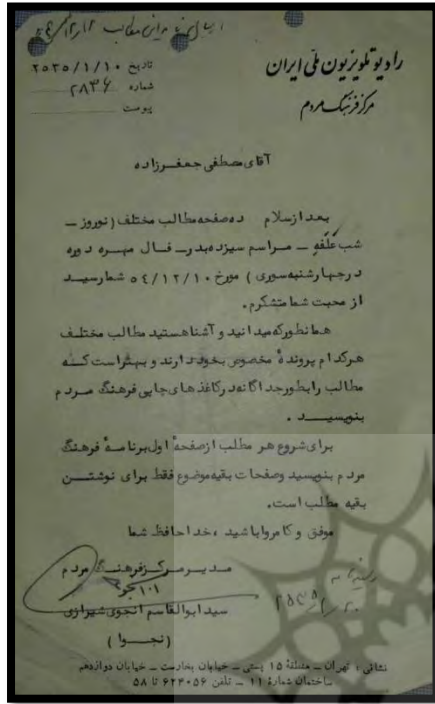 ارسالی با این مطالب ۵۴/۱۲/۱۲
رادیو تلویزیون ملی ایران
مرکز فرهنگ مردم
تاریخ ۲۵۳۵/۱/۱۰
شماره ۲۸۳۶
پیوست
آقای مصطفی جعفرزاده
بعد از سلام ده صفحه مطالب مختلف ( نوروز _
شب عَلَفِه _ مراسم سیزده بدر _ فال مهره دوره
در چهارشنبه سوری ) مورخ ۵۴/۱۲/۱۰ شما رسید
از محبت شما متشکرم .
همانطور که میدانید و آشنا هستید مطالب مختلف
هر کدام پرونده مخصوص بخود دارند و بهتر است که
مطالب را بطور جداگانه در کاغذهای چاپی فرهنگ مردم
بنویسید .
برای شروع هر مطلب از صفحهٔ اول برنامهٔ فرهنگ
مردم بنویسید و صفحات بقیه موضوع فقط برای نوشتن
بقیه مطلب است .
موفق و کامروا باشید ، خدا حافظ شما
مدیر مرکز فرهنگ مردم
سید ابوالقاسم انجوی شیرازی
( نجوا )
نشانی : تهران _ منطقهٔ ۱۵ پستی _ خیابان بخارست _ خیابان دوازدهم
ساختمان شمارهٔ ۱۱ _ تلفن ۶۲۴۰۵۶ تا ۵۸